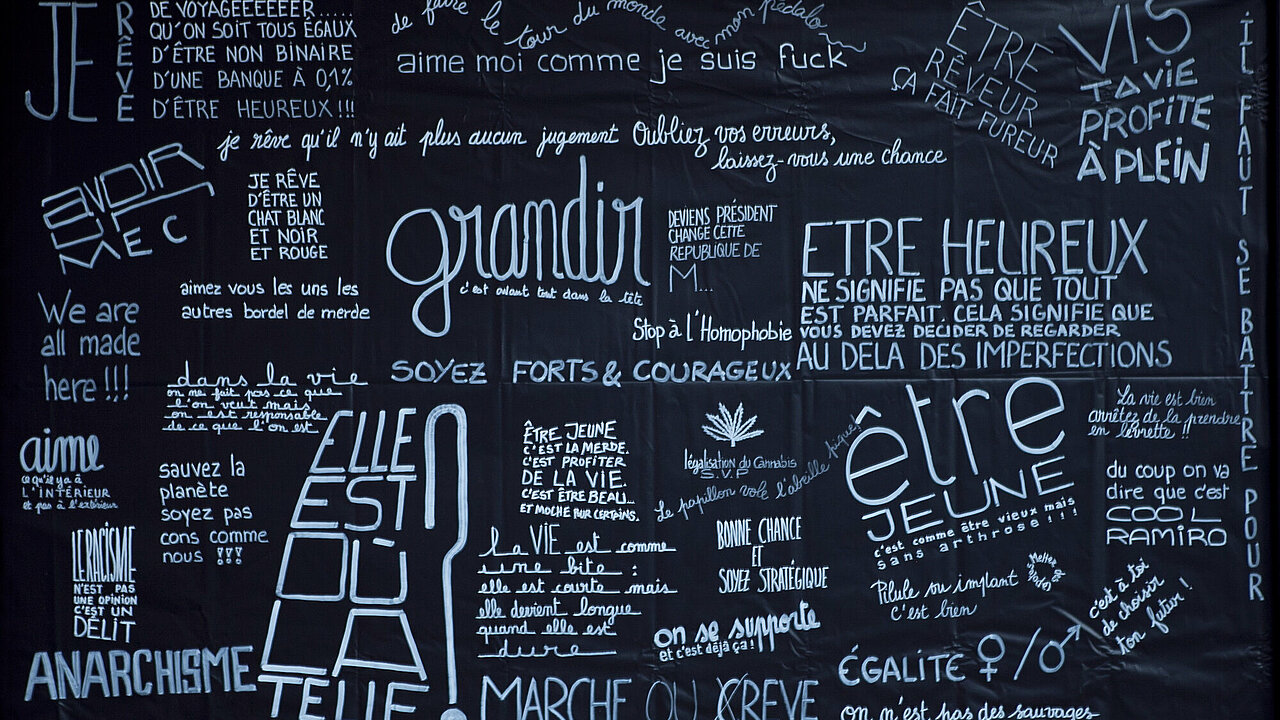 JE
RÊVE
DE VOYAGEEEEEER.....
QU'ON SOIT TOUS ÉGAUX
D'ÊTRE NON BINAIRE
D'UNE BANQUE À 0,1%
D'ÊTRE HEUREUX !!!
de faire le tour du monde avec mon pédalo
aime moi comme je suis fuck
ÊTRE
RÊVEUR
ÇA FAIT FUREUR
VIS
TA VIE
PROFITE
À PLEIN
IL FAUT SE BATTRE POUR
je rêve qu'il n'y ait plus aucun jugement
Oubliez vos erreurs,
laissez-vous une chance
AVOIR
MEC
JE RÊVE
D'ÊTRE UN
CHAT BLANC
ET NOIR
ET ROUGE
grandir
c'est avant tout dans la tête
DEVIENS PRÉSIDENT
CHANGE CETTE
REPUBLIQUE DE
M...
ETRE HEUREUX
NE SIGNIFIE PAS QUE TOUT
EST PARFAIT. CELA SIGNIFIE QUE
VOUS DEVEZ DECIDER DE REGARDER
AU DELA DES IMPERFECTIONS
We are
all made
here !!!
aimez vous les uns les
autres bordel de merde
Stop à l'Homophobie
SOYEZ FORTS & COURAGEUX
dans la vie
on ne fait pas ce que
l'on veut mais
on est responsable
de ce que l'on est
aime
ce qu'il y a à
L'INTÉRIEUR
et pas à l'extérieur
sauvez la
planète
soyez pas
cons comme
nous !!!
ELLE
EST
OÙ
LA
TELLE
?
ÊTRE JEUNE
C'EST LA MERDE.
C'EST PROFITER
DE LA VIE.
C'EST ÊTRE BEAU...
ET MOCHE POUR CERTAINS.
légalisation du Cannabis
S.V.P
Le papillon vole l'abeille pique!
être
JEUNE
c'est comme être vieux mais
sans arthrose !!!
La vie est bien
arrêtez de la prendre
en levrette !!
du coup on va
dire que c'est
COOL
RAMIRO
LE RACISME
N'EST PAS
UNE OPINION
C'EST UN
DÉLIT
La VIE est comme
une bite :
elle est courte mais
elle devient longue
quand elle est
dure
BONNE CHANCE
ET
SOYEZ STRATÉGIQUE
on se supporte
et c'est déjà ça !
Pilule ou implant
c'est bien
c'est à toi
de choisir
ton futur !
ANARCHISME
MARCHE OU CRÈVE
ÉGALITÉ ♀/♂
on n'est pas des sauvages